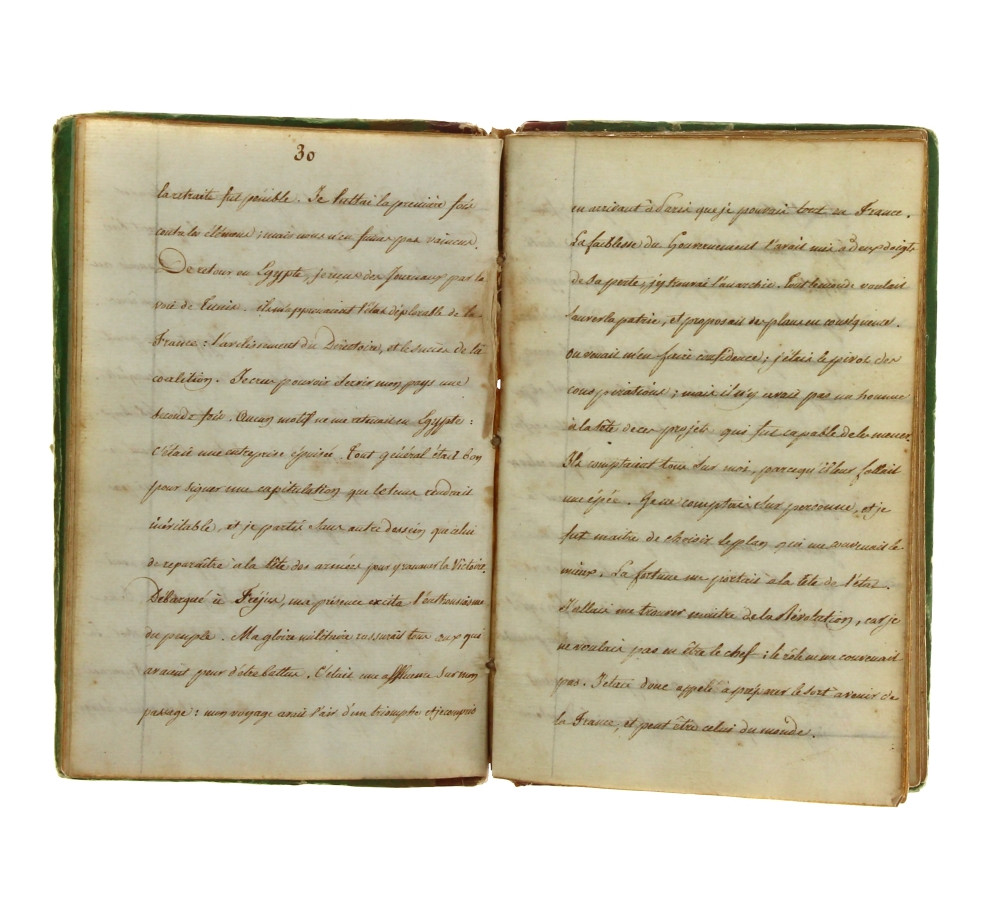 30
la retraite fut pénible. Je luttai la première fois
contre les élémens ; mais nous n'en fumes pas vaincus.
De retour en Egypte, je reçus des Journaux par la
voie de Tunis. ils m'apprenaient l'état déplorable de la
France : l'avilissement du Directoire, et le succès de la
coalition. Je crus pouvoir servir mon pays une
seconde fois. Aucun motif ne me retenait en Egypte :
c'était une entreprise épuisée. Tout général était bon
pour signer une capitulation que le tems rendrait
inévitable, et je partis sans autre dessein que celui
de reparaître à la tête des armées pour y ramener la Victoire.
Débarqué à Fréjus, ma présence excita l'enthousiasme
du peuple. Ma gloire militaire rassurait tous ceux qui
avaient peur d'être battus. C'était une affluence sur mon
passage : mon voyage avait l'air d'un triomphe et je compris
en arrivant à Paris que je pouvais tout en France.
La faiblesse du Gouvernement l'avait mis à deux doigts
de sa perte ; j'y trouvai l'anarchie. Tout le monde voulait
sauver la patrie, et proposait des plans en conséquence.
On venait m'en faire confidence ; j'étais le pivot des
conspirations ; mais il n'y avait pas un homme
à la tête de ces projets qui fut capable de les mener.
Ils comptaient tous sur moi, parcequ'il leur fallait
une épée. Je ne comptais sur personne, et je
fus maitre de choisir le plan qui me convenait le
mieux. La fortune me portait à la tête de l'état.
J'allais me trouver maitre de la Révolution, car je
ne voulais pas en être le chef : le rôle ne me convenait
pas. J'étais donc appelé à préparer le sort avenir de
la France, et peut être celui du monde.